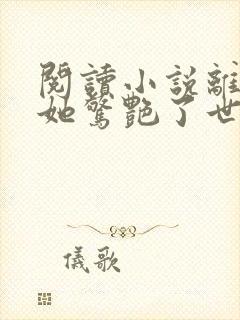 閱讀小説離
她驚艷了世
儀歌